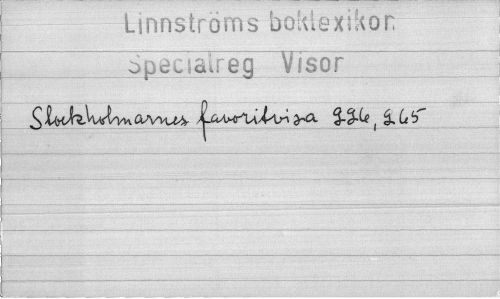 Linnströms boklexikon
Specialreg Visor
Stockholmarnes favoritvisa 226, 265